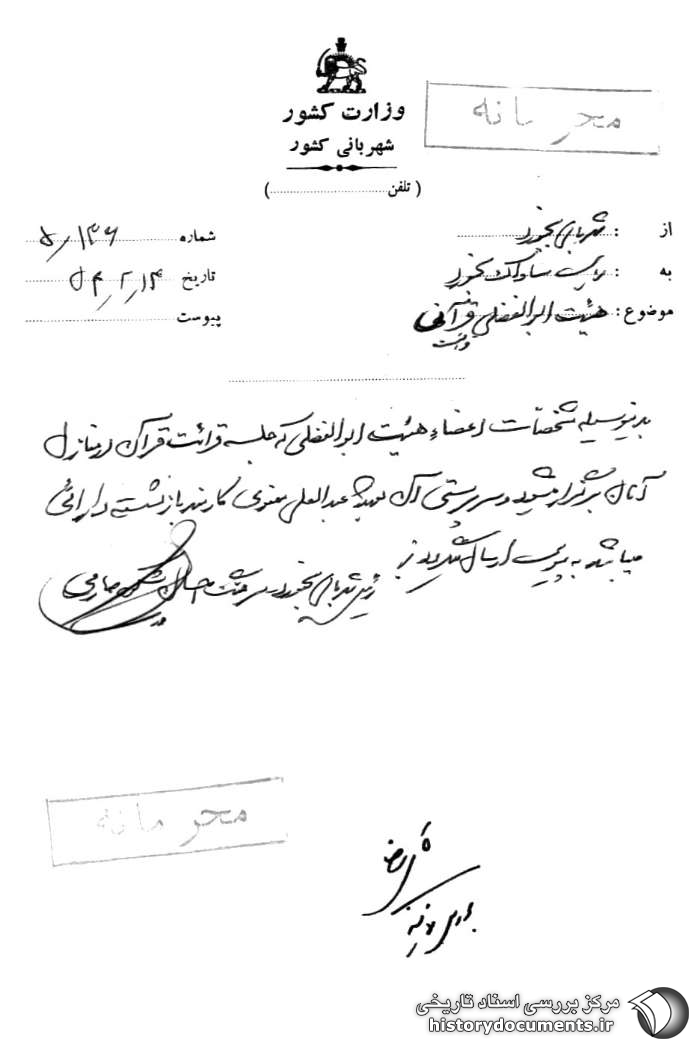 وزارت کشور
شهربانی کشور
( تلفن ........ )
محرمانه
از : شهربانی بجنورد
به : ریاست ساواک بجنورد
موضوع : هیئت ابوالفضلی قرآنی
شماره ۵/۱۳۶
تاریخ ۵۴/۲/۱۴
پیوست
بدینوسیله مشخصات اعضاء هیئت ابوالفضلی که جلسه قرائت قرآن در منازل
آنان برگزار میشود و سرپرستی آن بعهده عبدالعلی معنوی کارمند بازنشسته دارائی
میباشد به پیوست ارسال میگردد
رئیس شهربانی بجنورد
محرمانه
مرکز بررسی اسناد تاریخی
historydocuments.ir